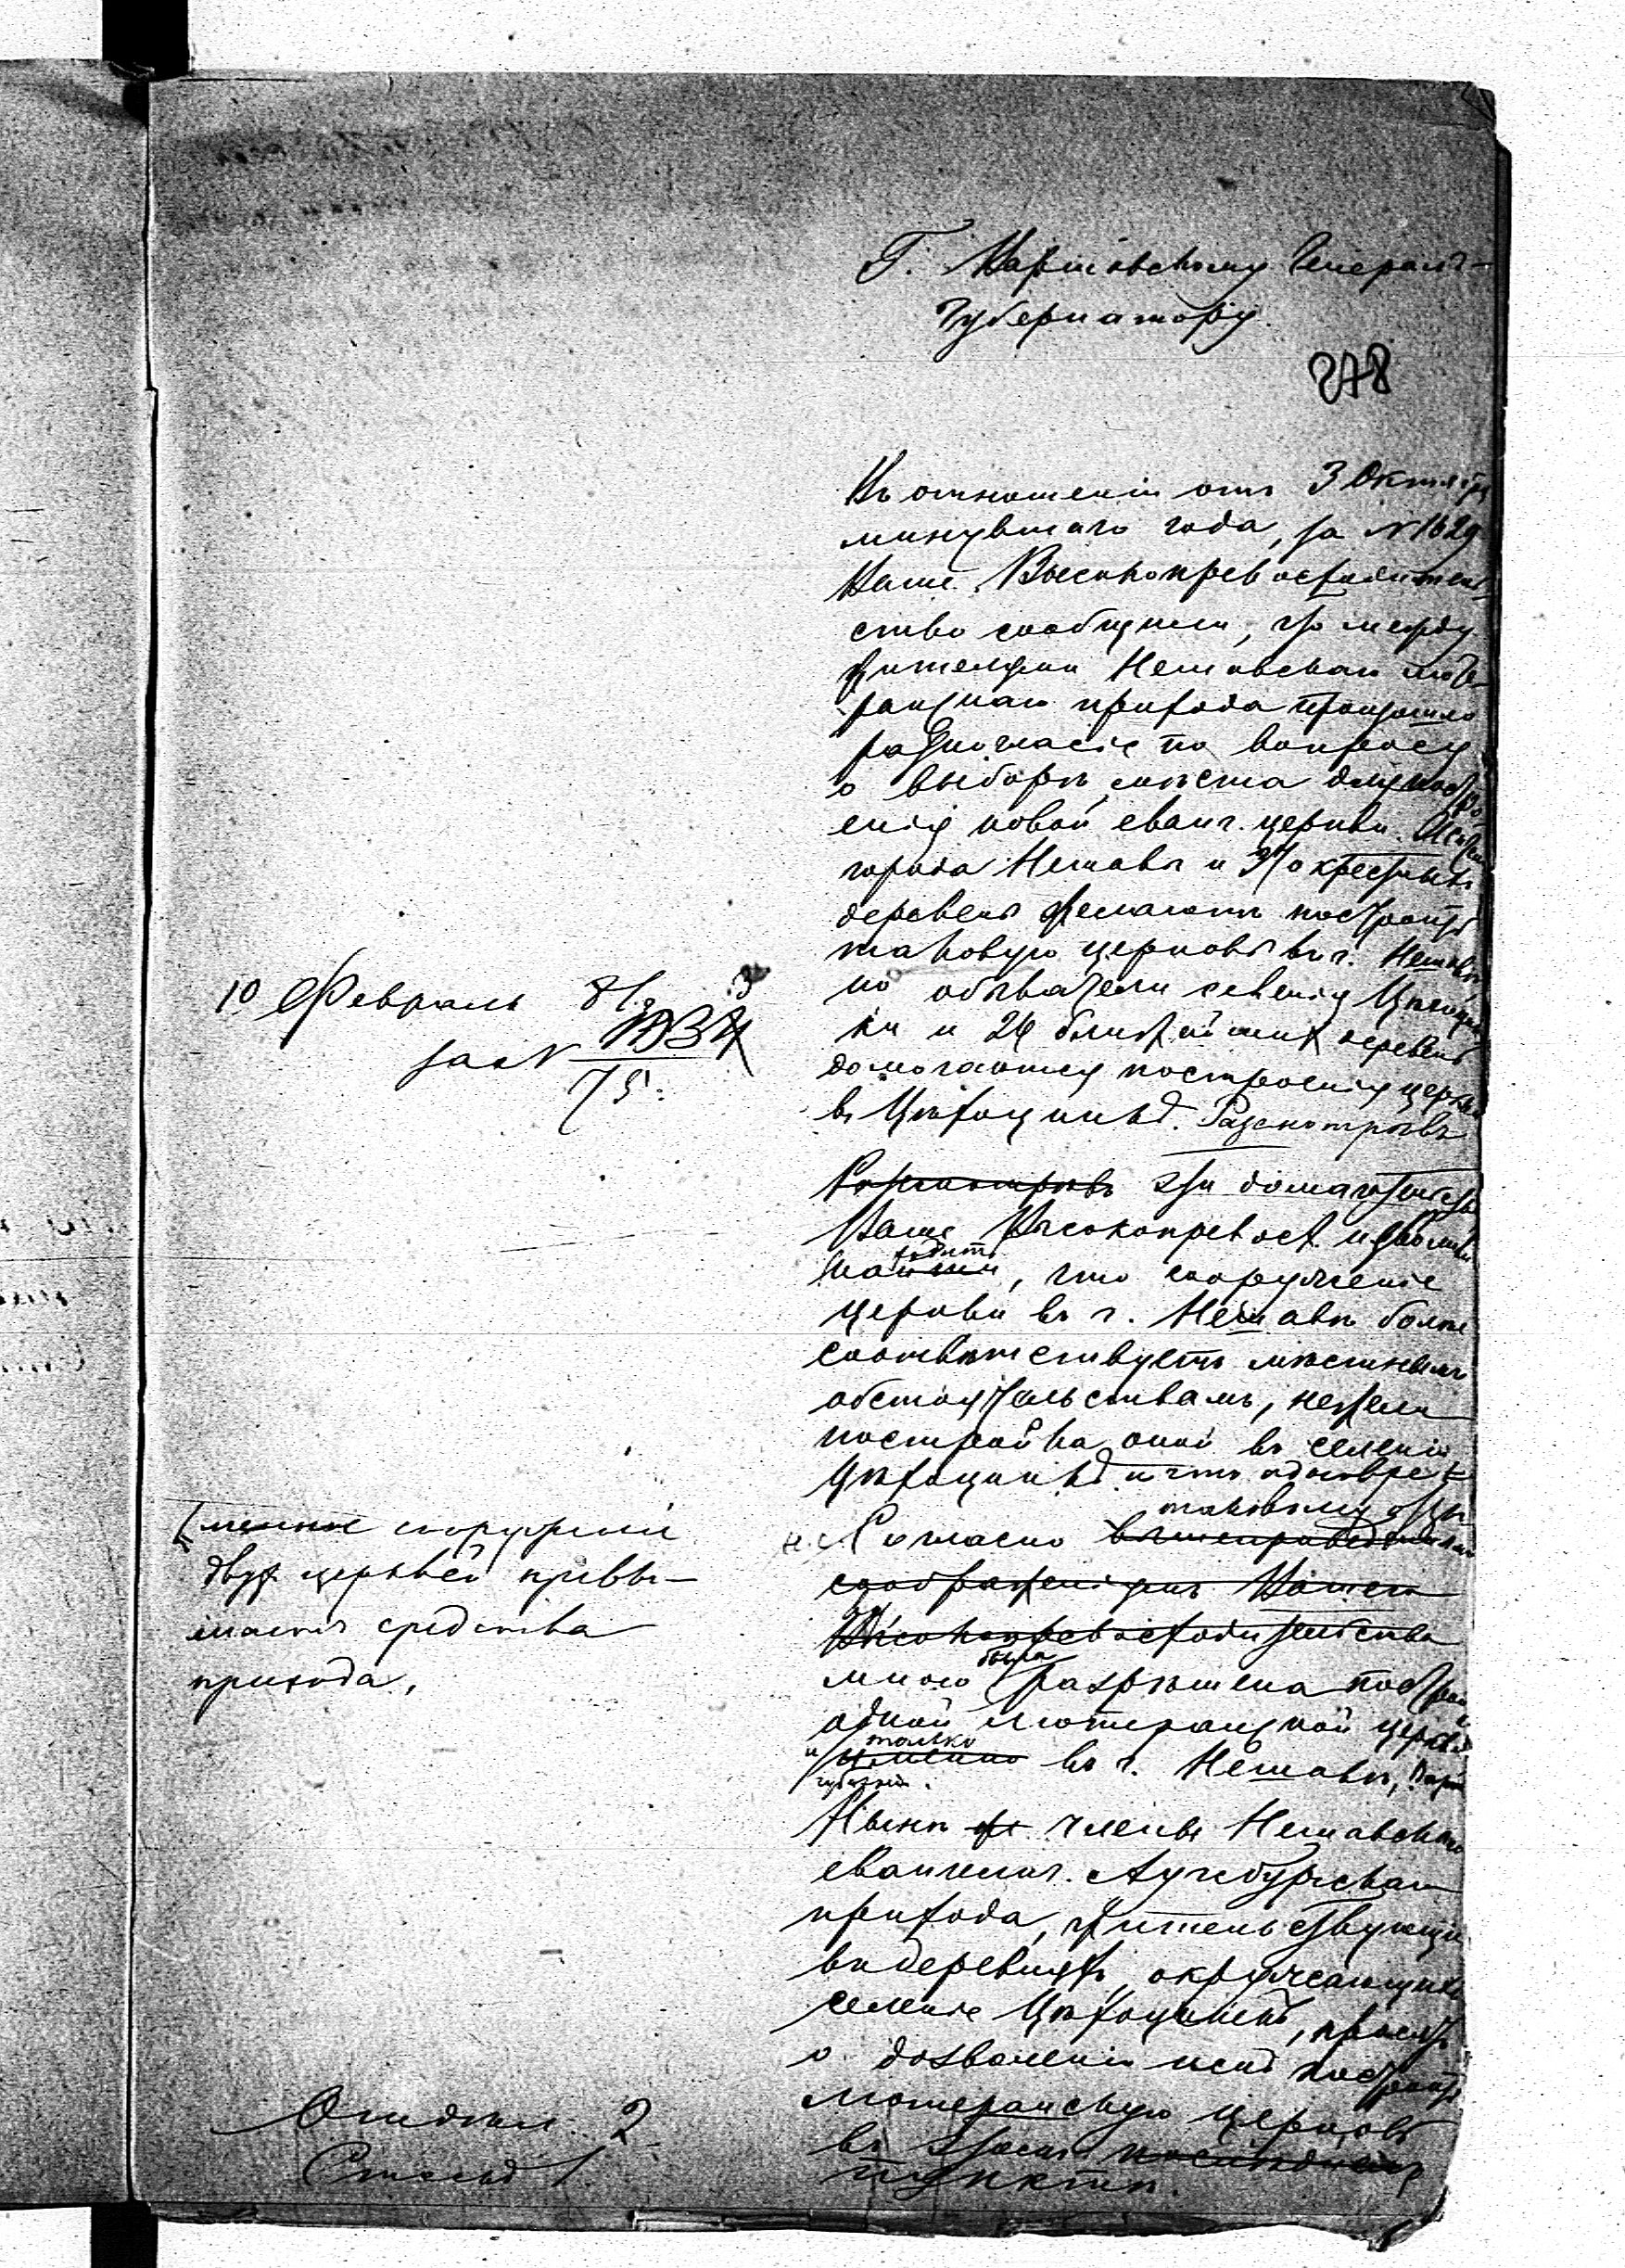 Г. Варшавскому Генералъ-
Губернатору.
278
Въ отношеніи отъ 3 Октября
минувшаго года, за № 1629
Ваше Высокопревосходитель-
ство сообщили, что между
жителями Нешавскаго люте-
ранскаго прихода произошло
разногласіе по вопросу
о выборѣ мѣста для постро-
енія новой еванг. церкви.
города Нешавы и окрестныхъ
деревень желаютъ построить
таковую церковь въ г. Нешавѣ,
но обыватели селенія
ки и 24 ближайшихъ деревень
домогаются построенія церкви
въ Цѣхоцинкѣ. Разсмотрѣвъ
Разсмотрѣвъ эти домогательства
Ваше Высокопревосх. изволили
находить
найти, что сооруженіе
церкви въ г. Нешавѣ болѣе
соотвѣтствуетъ мѣстнымъ
обстоятельствамъ, нежели
постройка оной въ селеніи
Цѣхоцинкѣ и что одновре-
10 Февраля 81 г.
за №
75.
менное сооруженіе
двухъ церквей превы-
шаетъ средства
прихода.
таковому
Согласно вышеприведеннымъ
соображеніямъ Вашего
Высокопревосходительства
была
мною разрѣшена постройка
одной лютеранской церкви
и только
именно въ г. Нешавѣ, Варш.
губерніи.
Нынѣ же члены Нешавскаго
евангелич. Аугсбургскаго
прихода, жительствующіе
въ деревняхъ, окружающихъ
селеніе Цѣхоцинекъ, просятъ
о дозволеніи имъ построить
лютеранскую церковь
въ этомъ послѣднемъ
пунктѣ.
2
1.